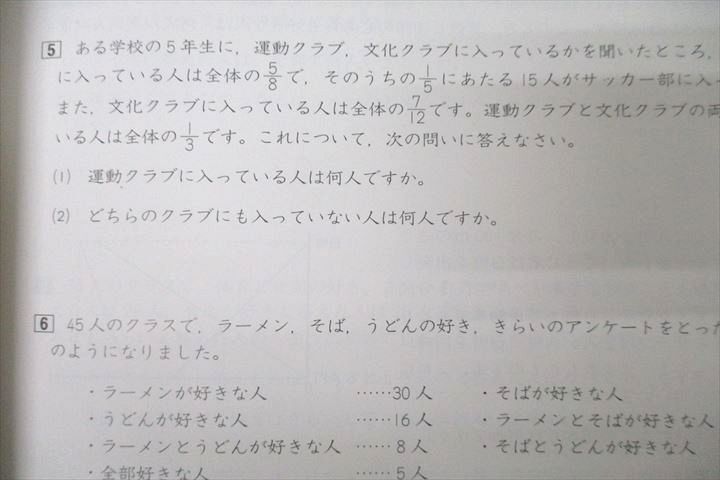 5 ある学校の5年生に，運動クラブ，文化クラブに入っているかを聞いたところ，
に入っている人は全体の5/8で，そのうちの1/5にあたる15人がサッカー部に入
また，文化クラブに入っている人は全体の7/12です。運動クラブと文化クラブの両
いる人は全体の1/3です。これについて，次の問いに答えなさい。
(1) 運動クラブに入っている人は何人ですか。
(2) どちらのクラブにも入っていない人は何人ですか。
6 45人のクラスで，ラーメン，そば，うどんの好き，きらいのアンケートをとった
のようになりました。
・ラーメンが好きな人 ……30人 ・そばが好きな人
・うどんが好きな人 ……16人 ・ラーメンとそばが好きな人
・ラーメンとうどんが好きな人 ……8人 ・そばとうどんが好きな人
・全部好きな人 ……5人